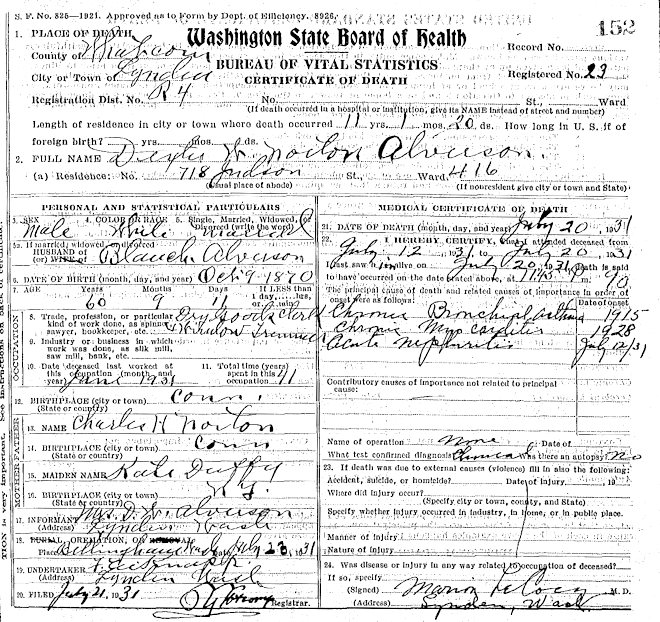 S. F. No. 825—1921. Approved as to Form by Dept. of Efficiency. 8926.
152
1. PLACE OF DEATH
Washington State Board of Health
County of Whatcom
Record No.
BUREAU OF VITAL STATISTICS
City or Town of Lynden
Registered No. 23
CERTIFICATE OF DEATH
Registration Dist. No. R 4 No. St., Ward
(If death occurred in a hospital or institution, give its NAME instead of street and number)
Length of residence in city or town where death occurred 11 yrs. 1 mos. 20 ds. How long in U. S. if of
foreign birth? yrs. mos. ds.
2. FULL NAME Dexter W. Norton Alverson.
(a) Residence: No. 718 Judson St., Ward 416
(Usual place of abode) (If nonresident give city or town and State)
PERSONAL AND STATISTICAL PARTICULARS
3. SEX 4. COLOR OR RACE 5. Single, Married, Widowed, or Divorced (write the word)
Male White Married
5a. If married, widowed, or divorced
HUSBAND of
(or) WIFE of Blanch Alverson
6. DATE OF BIRTH (month, day, and year) Oct 9 1870
7. AGE
60 9 11
If LESS than
1 day, hrs.
or min.
OCCUPATION
8. Trade, profession, or particular
kind of work done, as spinner,
sawyer, bookkeeper, etc.
Dry Goods Clerk
& Window Trimmer
9. Industry or business in which
work was done, as silk mill,
saw mill, bank, etc.
10. Date deceased last worked at
this occupation (month and
year) June 1931
11. Total time (years)
spent in this
occupation 41
12. BIRTHPLACE (city or town)
(State or country) Conn.
FATHER
13. NAME Charles H Norton
14. BIRTHPLACE (city or town)
(State or country) Conn
MOTHER
15. MAIDEN NAME Kate Duffy
16. BIRTHPLACE (city or town)
(State or country) N. Y.
17. INFORMANT Mrs. D. W. Alverson
(Address) Lynden Wash
18. BURIAL, CREMATION, OR REMOVAL
Place Bellingham Wash Date July 23 1931
19. UNDERTAKER
(Address) Lynden Wash
20. FILED July 21, 1931
Registrar.
MEDICAL CERTIFICATE OF DEATH
21. DATE OF DEATH (month, day, and year) July 20, 1931
22. I HEREBY CERTIFY, that I attended deceased from
July 12 1931 to July 20, 1931
I last saw him alive on July 20, 1931 death is said
to have occurred on the date stated above, at 11:45 P. m.
The principal cause of death and related causes of importance in order of
onset were as follows: Date of onset
Chronic Bronchial Asthma 1915
Chronic Myocarditis 1928
Acute Nephritis July 12/31
Contributory causes of importance not related to principal
cause:
Name of operation None Date of
What test confirmed diagnosis? Clinical Was there an autopsy? No
23. If death was due to external causes (violence) fill in also the following:
Accident, suicide, or homicide? Date of injury 19
Where did injury occur?
(Specify city or town, county, and State)
Specify whether injury occurred in industry, in home, or in public place.
Manner of injury
Nature of injury
24. Was disease or injury in any way related to occupation of deceased?
If so, specify
(Signed) M. D.
(Address) Lynden, Wash.
TION is very important. See instructions on back of certificate.